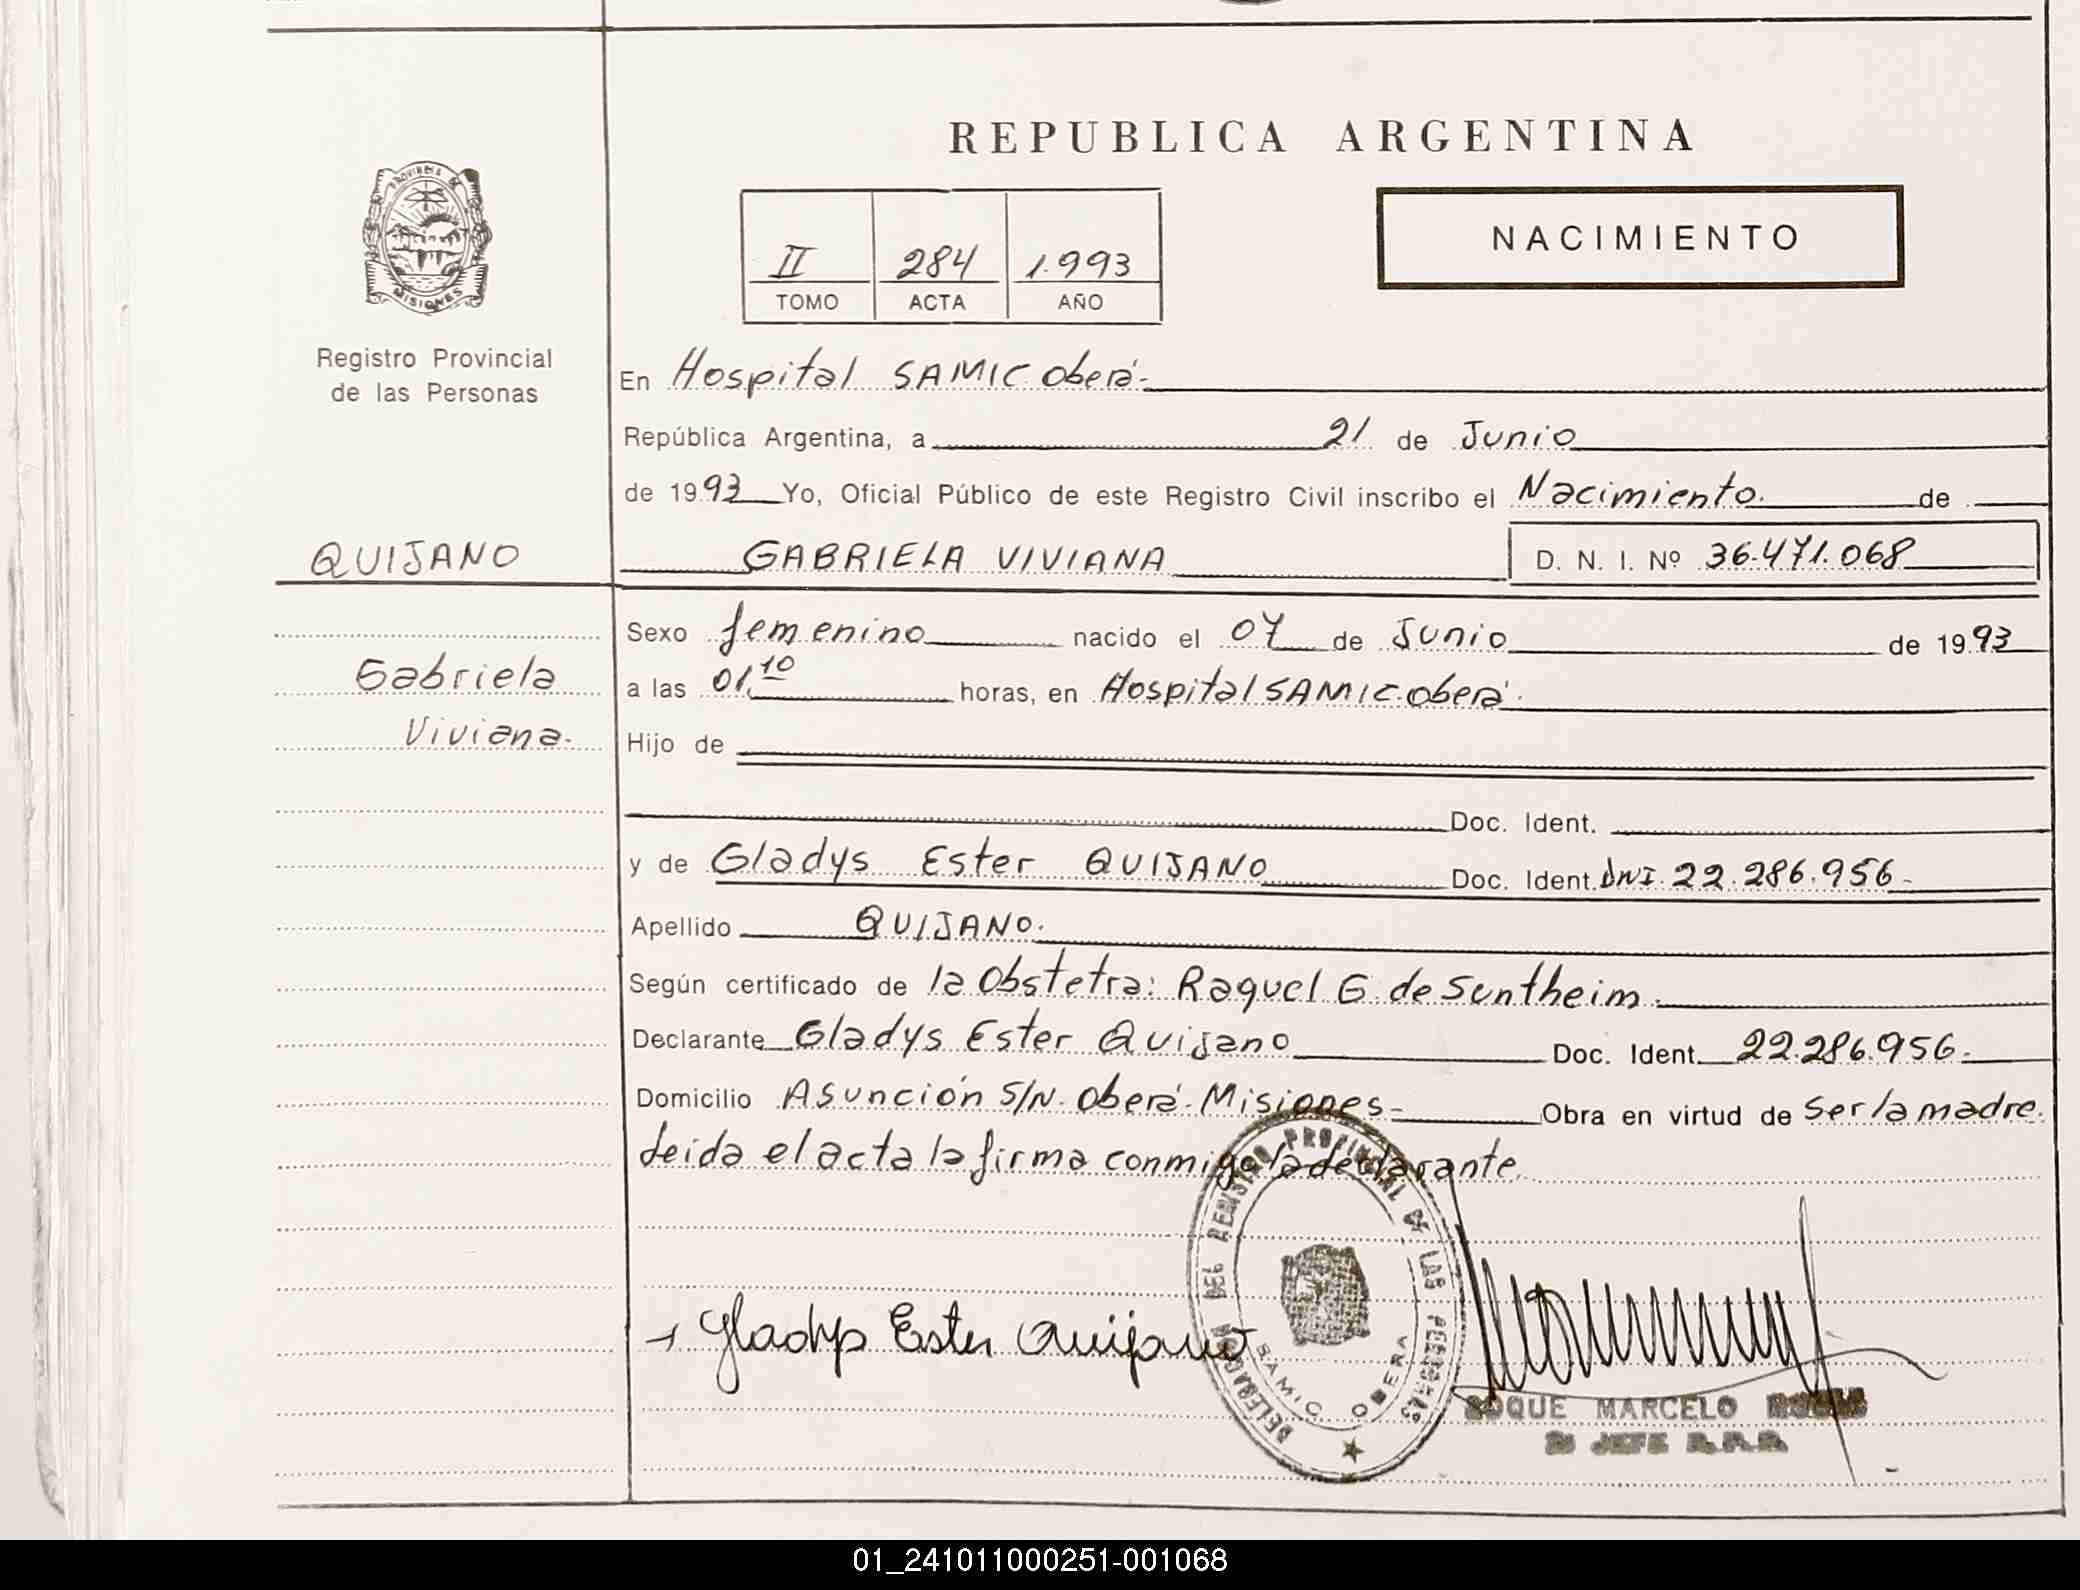 REPUBLICA ARGENTINA
PROVINCIA DE
MISIONES
Registro Provincial
de las Personas
II 284 1.993
TOMO ACTA AÑO
NACIMIENTO
En Hospital SAMIC Oberá.
República Argentina, a 21 de Junio
de 1993 Yo, Oficial Público de este Registro Civil inscribo el Nacimiento. de
QUIJANO GABRIELA VIVIANA D. N. I. Nº 36.471.068
Sexo femenino nacido el 07 de Junio de 1993
Gabriela
a las 01,10 horas, en Hospital SAMIC. Oberá.
Viviana.
Hijo de
Doc. Ident.
y de Gladys Ester QUIJANO Doc. Ident. DNI. 22.286.956.
Apellido QUIJANO.
Según certificado de la Obstetra: Raquel G. de Sentheim.
Declarante Gladys Ester Quijano Doc. Ident. 22.286.956.
Domicilio Asunción S/N. Oberá. Misiones. Obra en virtud de Ser la madre.
Leída el acta la firma conmigo la declarante.
DELEGACION DEL REGISTRO PROVINCIAL DE LAS PERSONAS
SAMIC OBERA
Gladys Ester Quijano
ROQUE MARCELO
JEFE R.P.P.
01_241011000251-001068